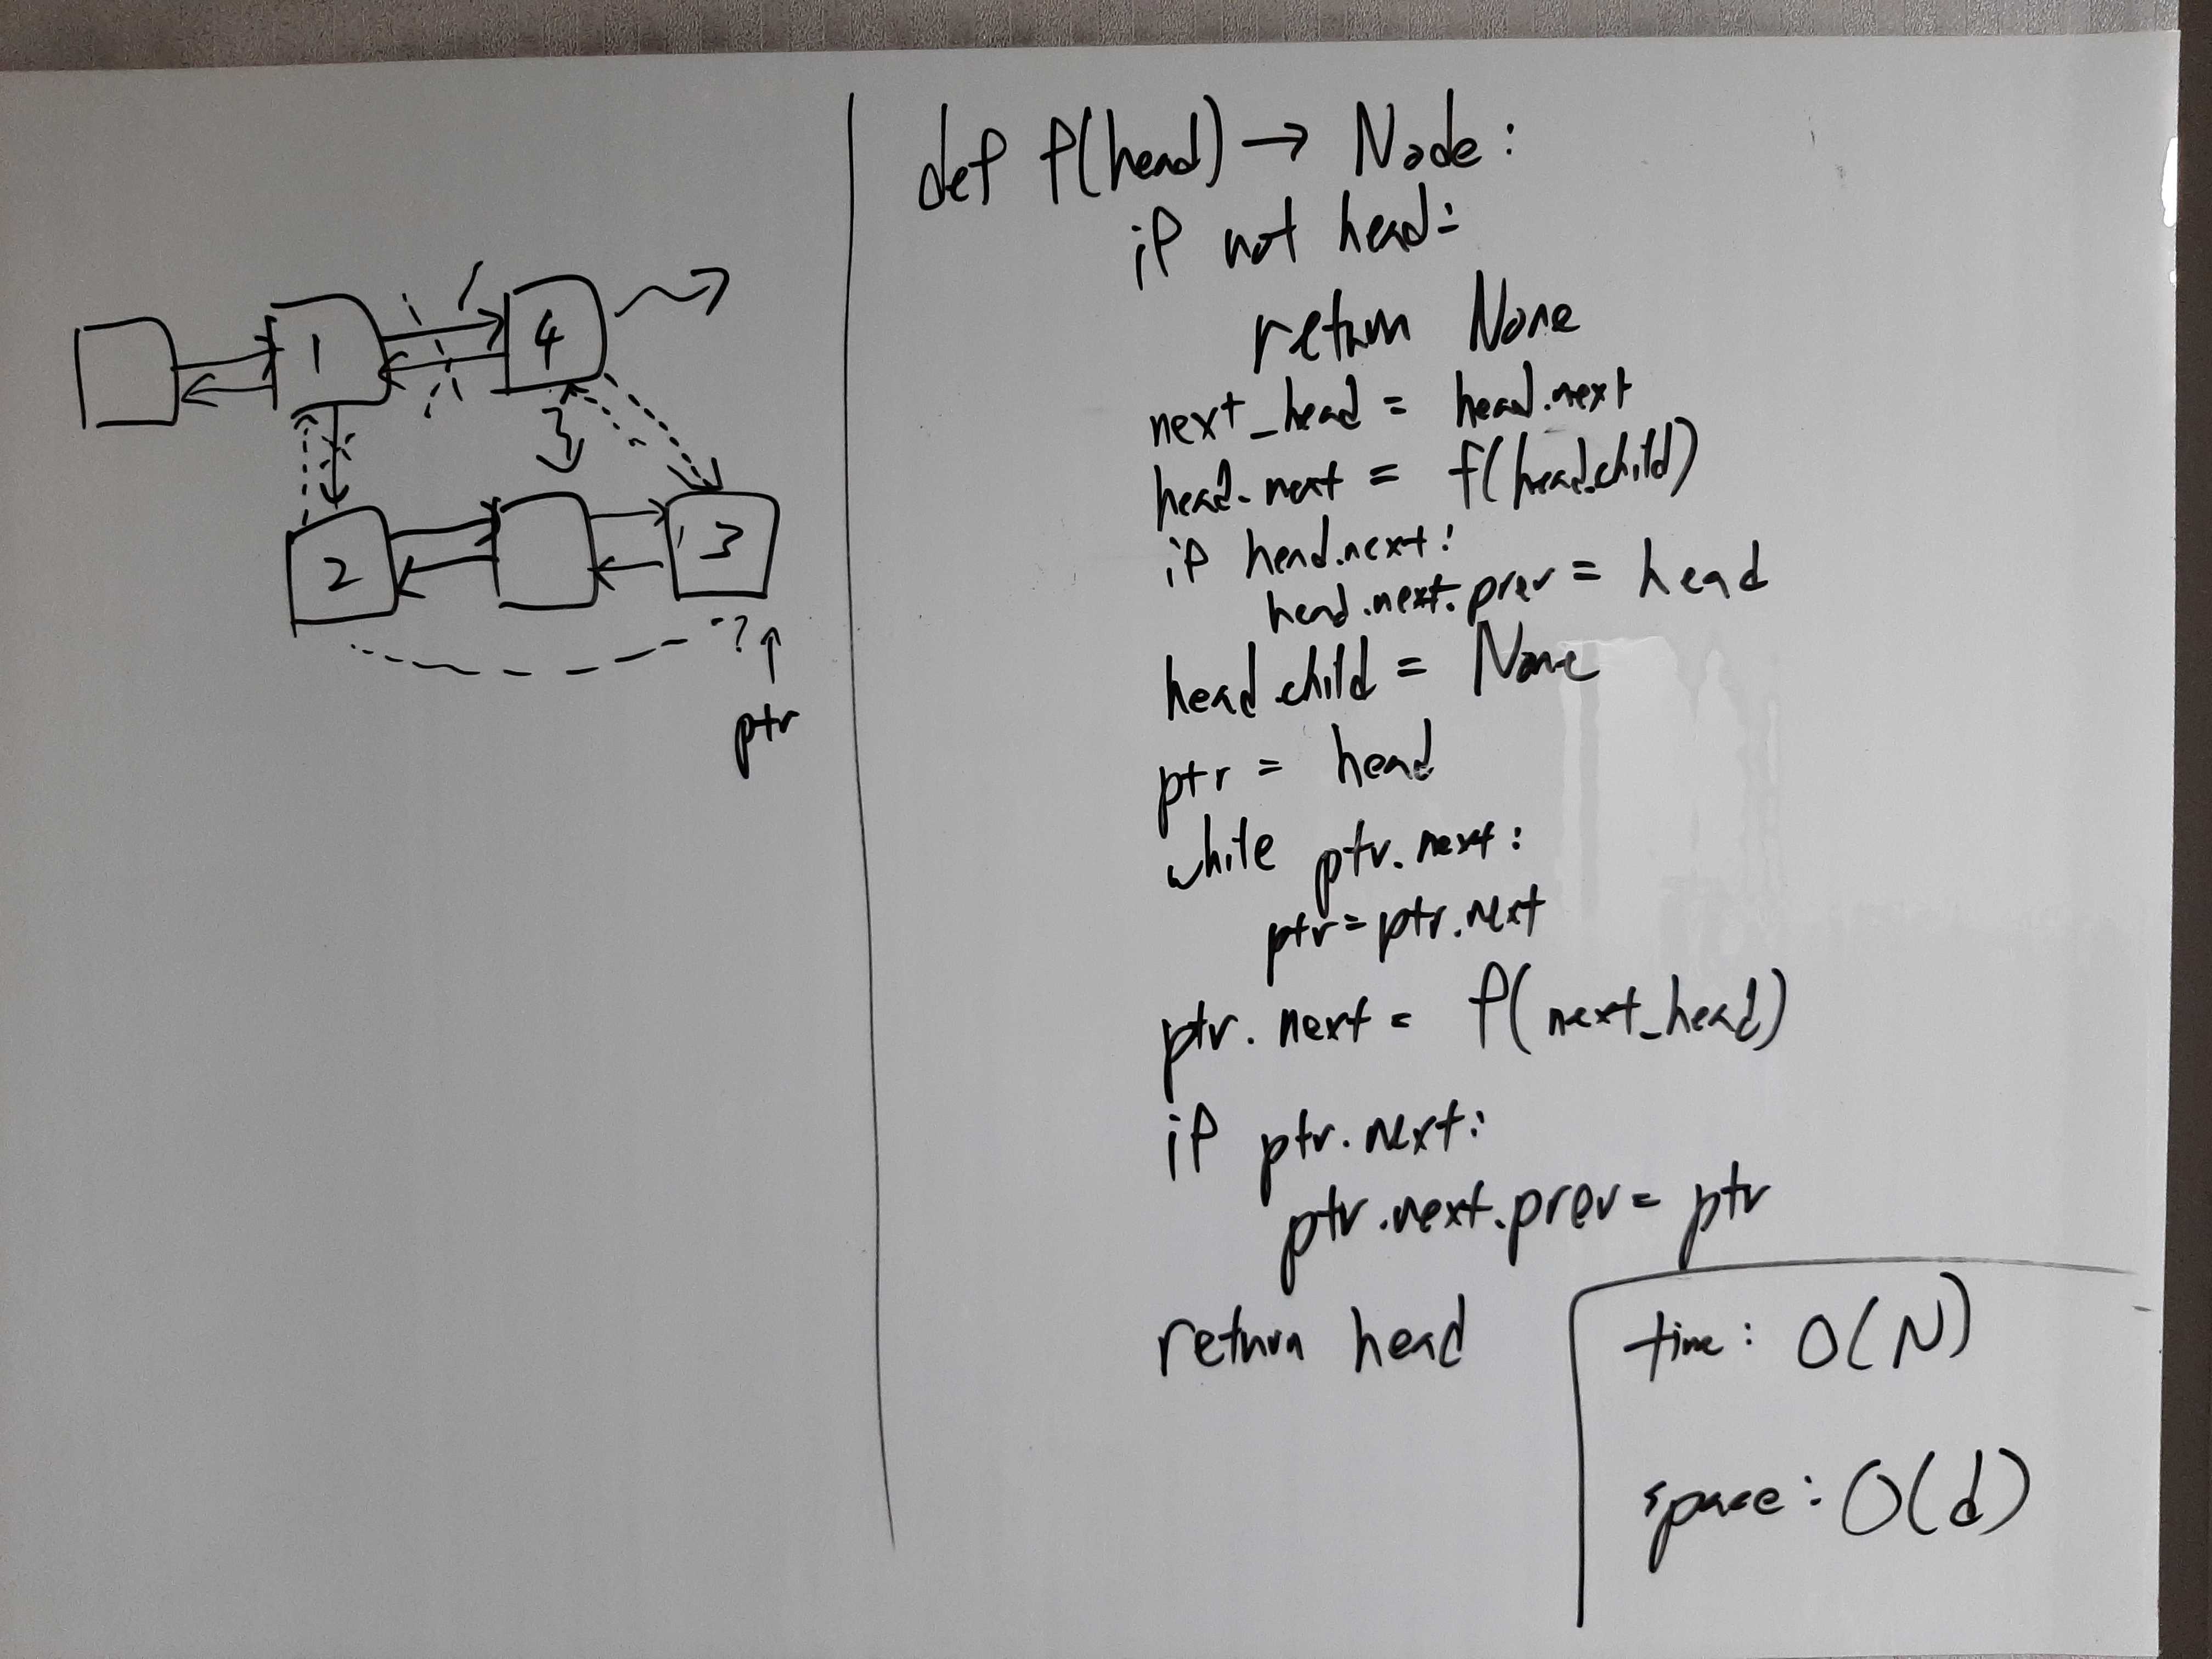 1
4
2
3
?
ptr
def f(head) → Node:
if not head:
return None
next_head = head.next
head.next = f(head.child)
if head.next:
head.next.prev = head
head.child = None
ptr = head
while ptr.next:
ptr = ptr.next
ptr.next = f(next_head)
if ptr.next:
ptr.next.prev = ptr
return head
time: O(N)
space: O(d)